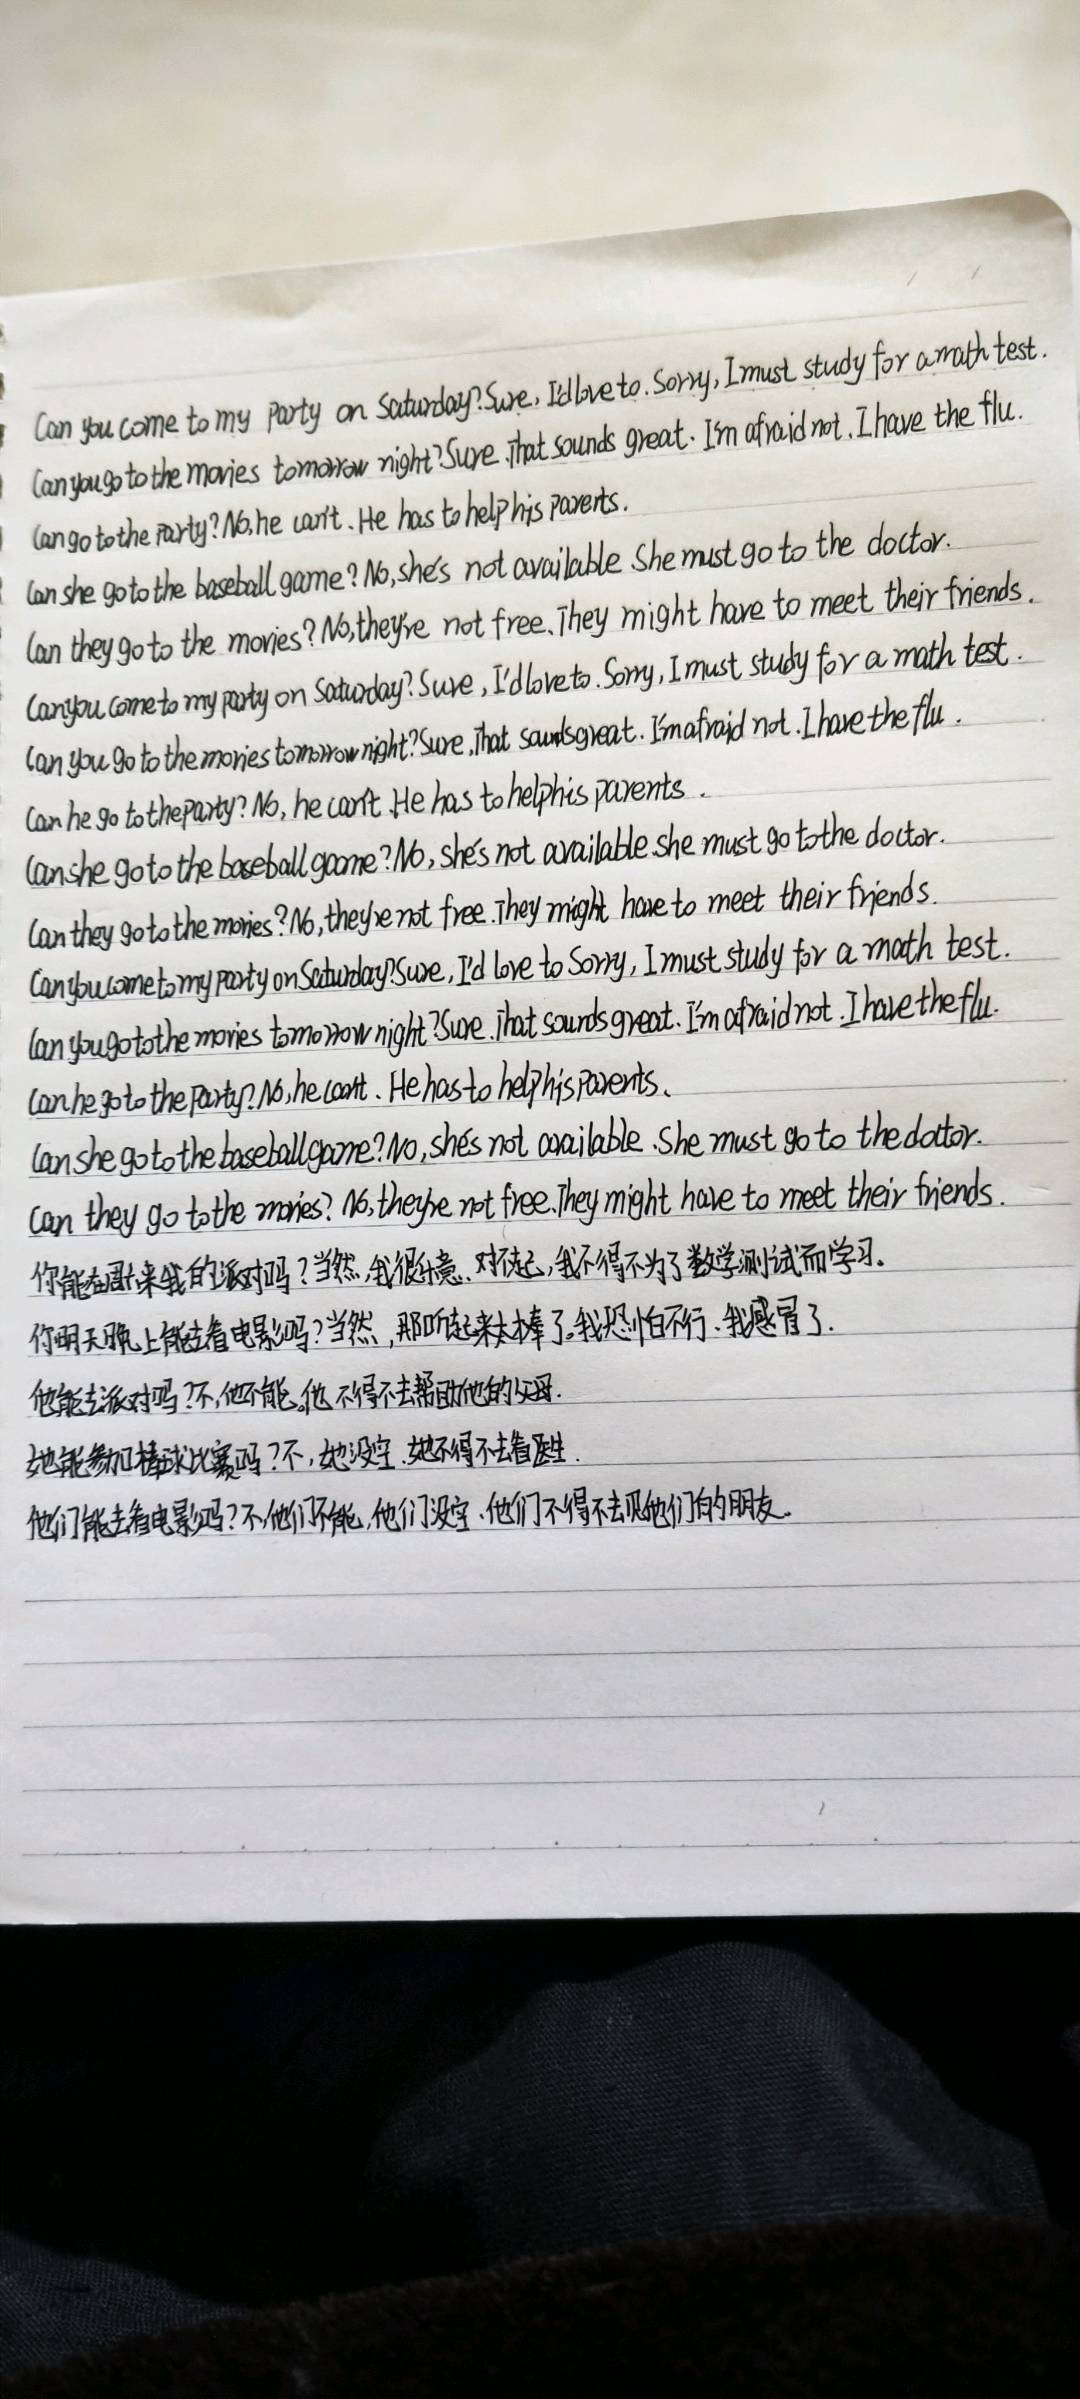 Can you come to my party on Saturday? Sure, I'd love to. Sorry, I must study for a math test.
Can you go to the movies tomorrow night? Sure. That sounds great. I'm afraid not. I have the flu.
Can go to the party? No, he can't. He has to help his parents.
Can she go to the baseball game? No, she's not available. She must go to the doctor.
Can they go to the movies? No, they're not free. They might have to meet their friends.
Can you come to my party on Saturday? Sure, I'd love to. Sorry, I must study for a math test.
Can you go to the movies tomorrow night? Sure, That sounds great. I'm afraid not. I have the flu.
Can he go to the party? No, he can't. He has to help his parents.
Can she go to the baseball game? No, she's not available. She must go to the doctor.
Can they go to the movies? No, they're not free. They might have to meet their friends.
Can you come to my party on Saturday? Sure, I'd love to Sorry, I must study for a math test.
Can you go to the movies tomorrow night? Sure. That sounds great. I'm afraid not. I have the flu.
Can he go to the party? No, he can't. He has to help his parents.
Can she go to the baseball game? No, she's not available. She must go to the doctor.
Can they go to the movies? No, they're not free. They might have to meet their friends.
你能在周六来我的派对吗?当然,我很乐意.对不起,我不得不为了数学测试而学习。
你明天晚上能去看电影吗?当然,那听起来太棒了。我恐怕不行.我感冒了.
他能去派对吗?不,他不能。他不得不去帮助他的父母.
她能参加棒球比赛吗?不,她没空.她不得不去看医生.
他们能去看电影吗?不,他们不能,他们没空.他们不得不去见他们的朋友。